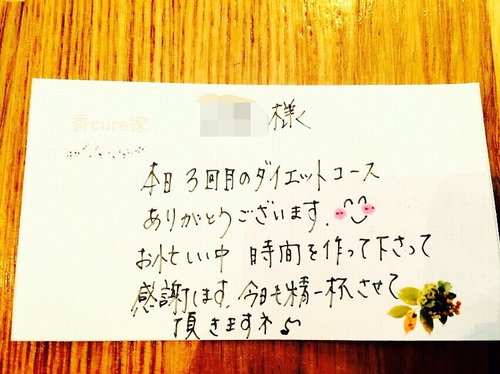 香cure家
様へ
本日3回目のダイエットコース
ありがとうございます。
お忙しい中 時間を作って下さって
感謝します。今日も精一杯させて
頂きますネ♪